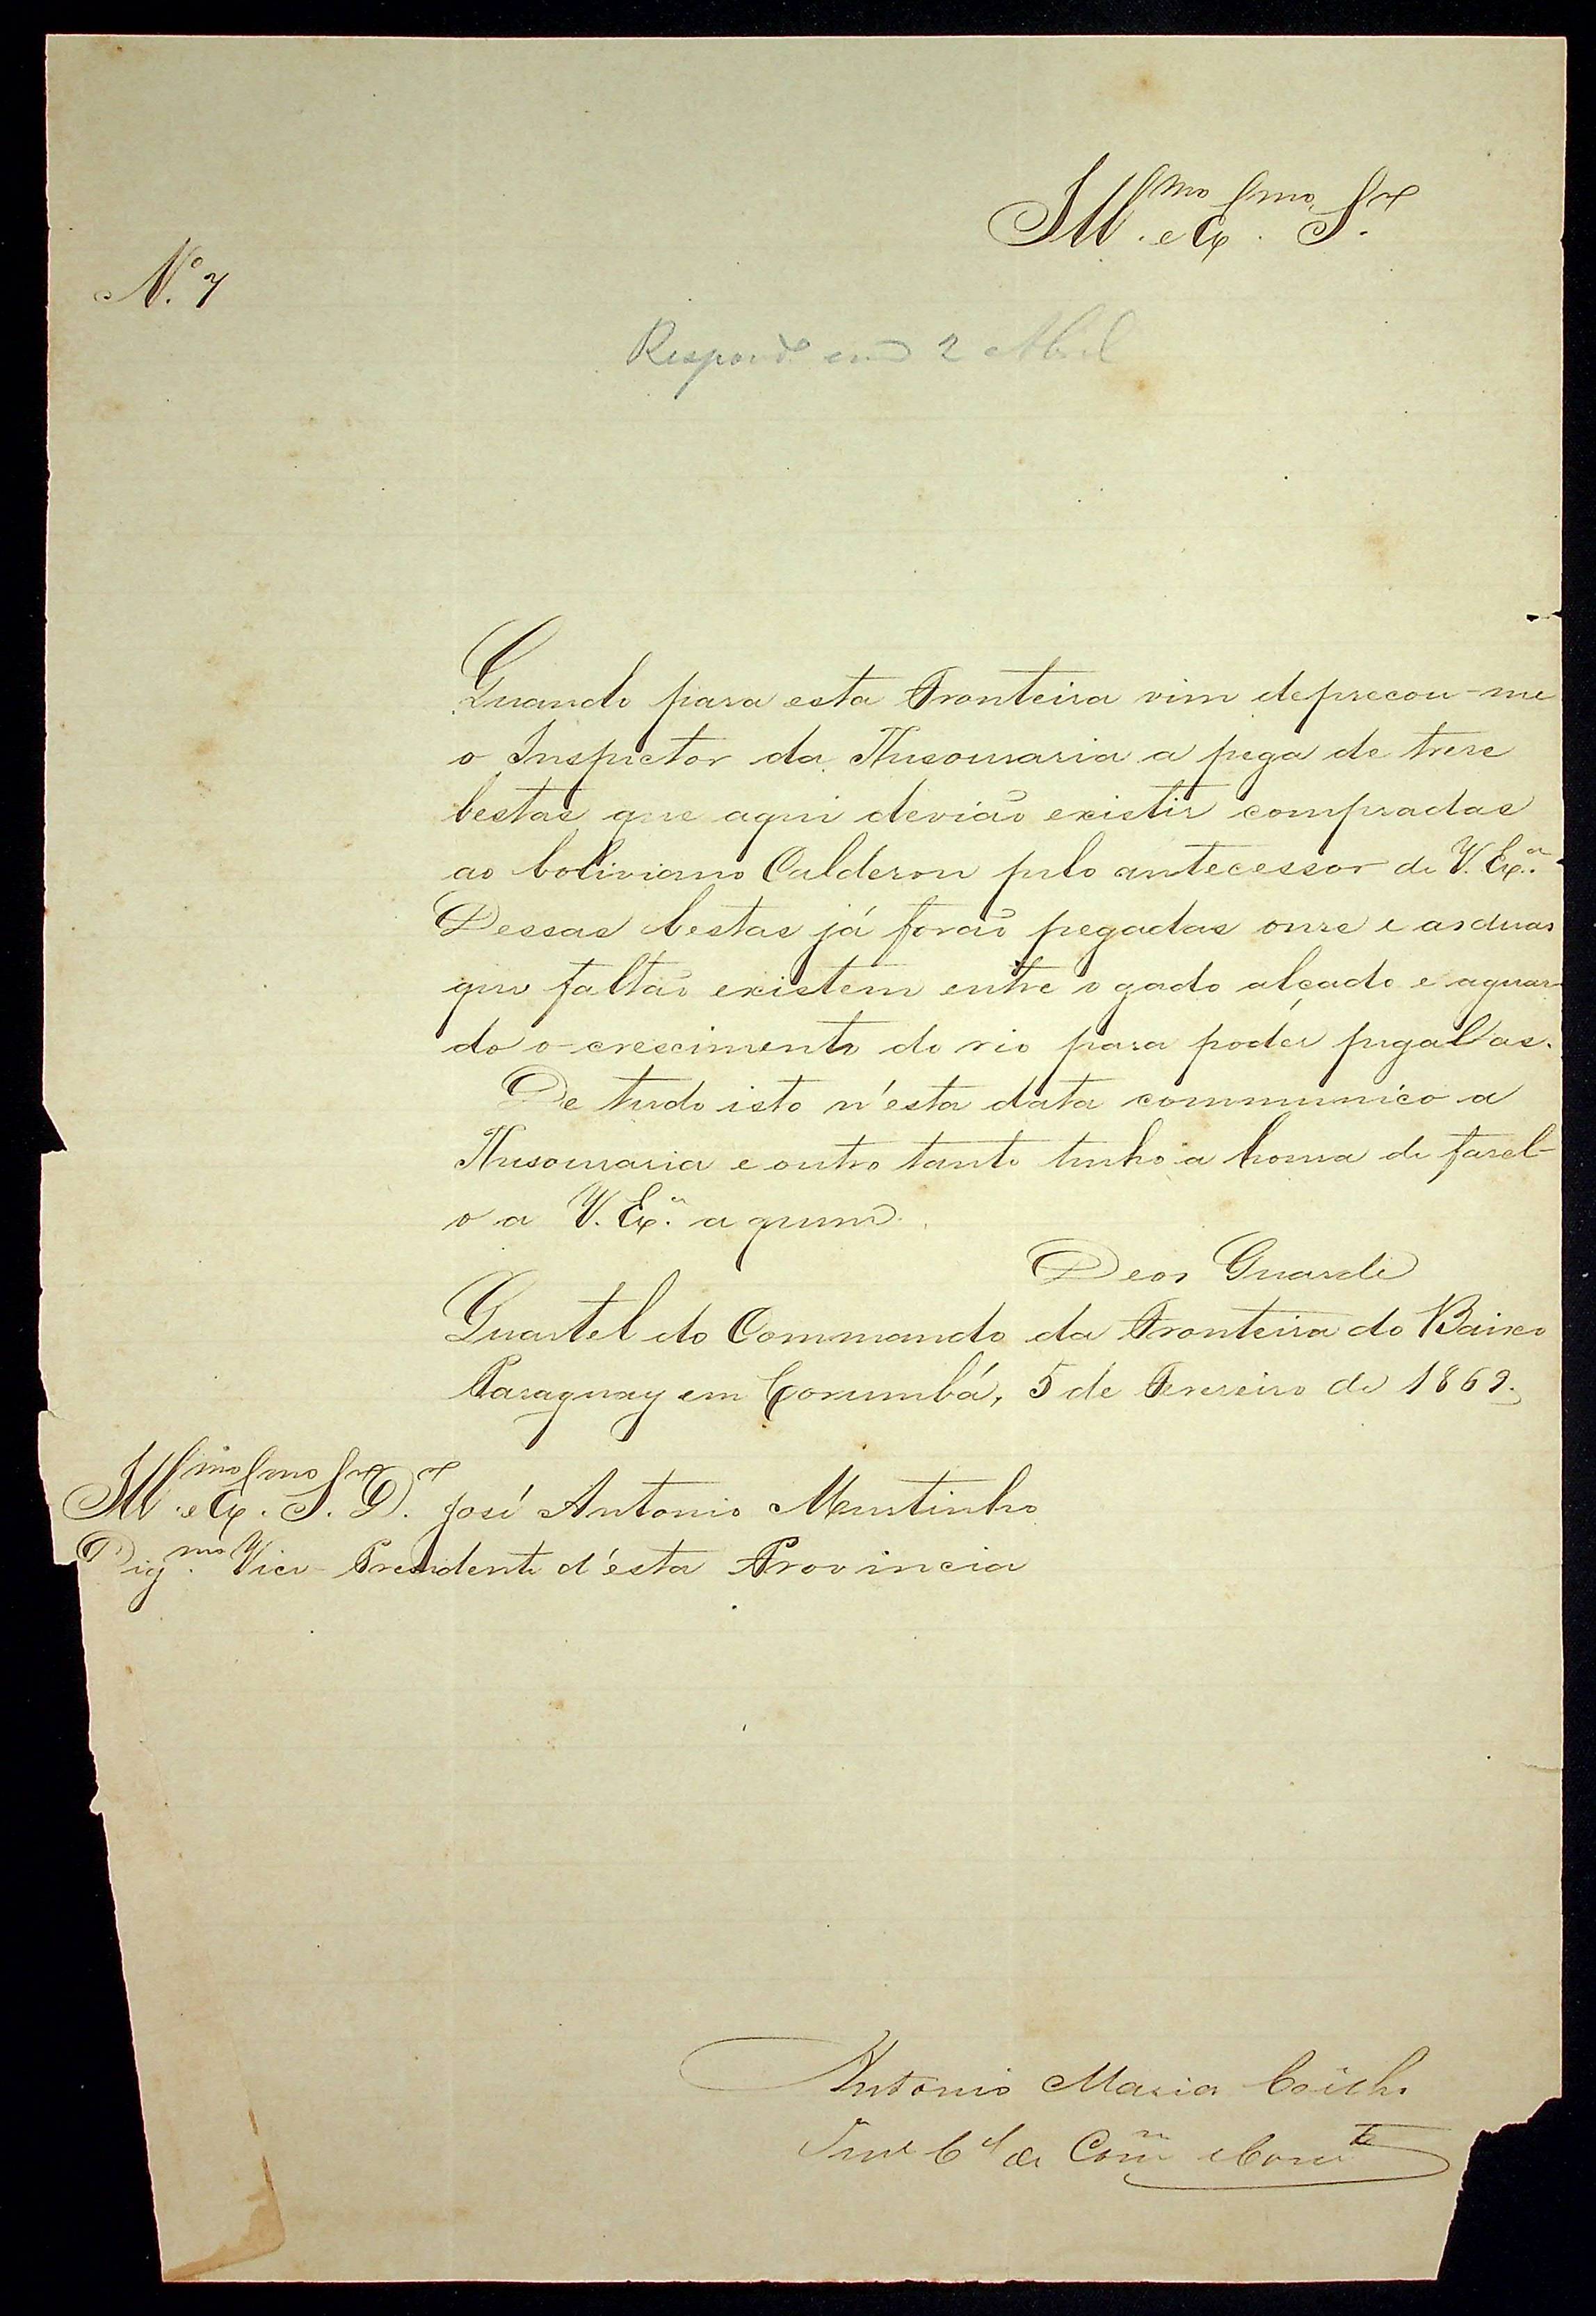 Ill.mo e Ex.mo S.r
N.o 7
Respond.o em 2 Abril
Quando para esta Fronteira vim deprecou-me
o Inspector da Thesouraria a pega de trese
bestas que aqui devião existir compradas
ao boliviano Calderon pelo antecessor de V. Ex.a
Dessas bestas já forão pegadas onse e as duas
que faltão existem entre o gado alçado e aguar-
do o crescimento do rio para poder pegal'as.
De tudo isto n'esta data communico a
Thesouraria e outro tanto tenho a honra de fasel-
o a V. Ex.a a quem
Deos Guarde
Quartel do Commando da Fronteira do Baixo
Paraguay em Corumbá, 5 de Fevereiro de 1869.
Ill.mo e Ex.mo S.r D.r José Antonio Murtinho
Dig.mo Vice-Presidente d'esta Provincia
Antonio Maria Coelho
Ten.e C.el de Com.m Com.te